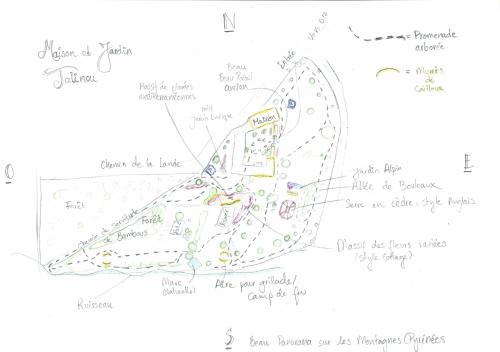 N
Maison et Jardin
Tatinou
Entrée
Vers Aire
= Promenade
arborée
= Murets de
Cailloux
Beau
Beau Portail
ancien
Massif de plantes
méditerranéennes
petit
Jardin Ludique
Maison
Chemin de la Lande
O
E
Jardin Alpin
Allée de Bouleaux
Serre en cèdre: style Anglais
Forêt
Forêt
Chemin de servitude
de Bambous
Massif des fleurs variées
(style Cottage)
Mare
(naturelle)
Aire pour grillade/
Camp de feu
Ruisseau
S
Beau Panorama sur les Montagnes (Pyrénées